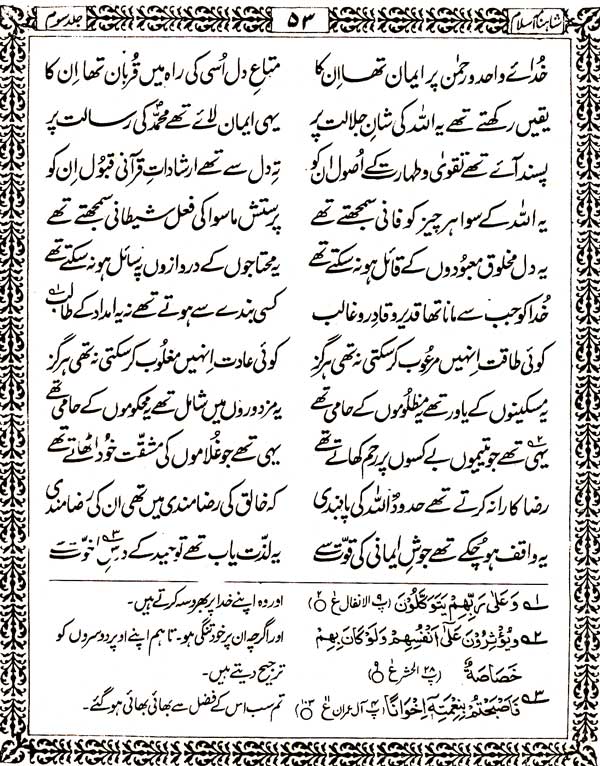 شاہنامہ اسلام ۵۳ جلد سوم
خدائے واحد و رحمٰن پر ایمان تھا ان کا متاعِ دل اُسی کی راہ میں قُربان تھا اِن کا
یقیں رکھتے تھے یہ اللہ کی شانِ جلالت پر یہی ایمان لائے تھے محمدؐ کی رسالت پر
پسند آئے تھے تقویٰ و طہارت کے اُصول ان کو تہِ دل سے تھے ارشاداتِ قرآنی قبُول اِن کو
یہ اللہ کے سوا ہر چیز کو فانی سمجھتے تھے پرستش ماسوا کی فعلِ شیطانی سمجھتے تھے
یہ دل مخلوق معبُودوں کے قائل ہو نہ سکتے تھے یہ محتاجوں کے دروازوں پہ سائل ہو نہ سکتے تھے
خُدا کو جب سے مانا تھا قدیر و قادر و غالب کسی بندے سے ہوتے تھے نہ یہ امداد کے طالب ۱؎
کوئی طاقت اِنہیں مرعُوب کر سکتی نہ تھی ہرگز کوئی عادت اِنہیں مغلُوب کر سکتی نہ تھی ہرگز
یہ مسکینوں کے یاور تھے یہ مظلُوموں کے حامی تھے یہ مزدوروں میں شامل تھے یہ محکوموں کے حامی تھے
یہی ۲؎ تھے جو یتیموں بے کسوں پر رحم کھاتے تھے یہی تھے جو غُلاموں کی مشقّت خُود اٹھاتے تھے
رضا کارانہ کرتے تھے حدودُ اللہ کی پابندی کہ خالق کی رضامندی میں تھی ان کی رضامندی
یہ واقف ہو چکے تھے جوشِ ایمانی کی قوّت سے یہ لذّت یاب تھے توحید کے درسِ ۳؎ اخوّت سے
۱؎ وَعَلٰی رَبِّهِمْ يَتَوَكَّلُوْنَ (پ ۹ الانفال ع ۲) اور وہ اپنے خدا پر بھروسہ کرتے ہیں۔
۲؎ وَيُؤْثِرُوْنَ عَلٰی اَنْفُسِهِمْ وَلَوْ كَانَ بِهِمْ اور اگرچہ ان پر خود تنگی ہو۔ تاہم اپنے اوپر دوسروں کو
خَصَاصَةٌ (پ ۲۸ الحشر ع ۹) ترجیح دیتے ہیں۔
۳؎ فَاَصْبَحْتُمْ بِنِعْمَتِهٖ اِخْوَانًا (پ ۴ آل عمران ع) تم سب اس کے فضل سے بھائی بھائی ہو گئے۔